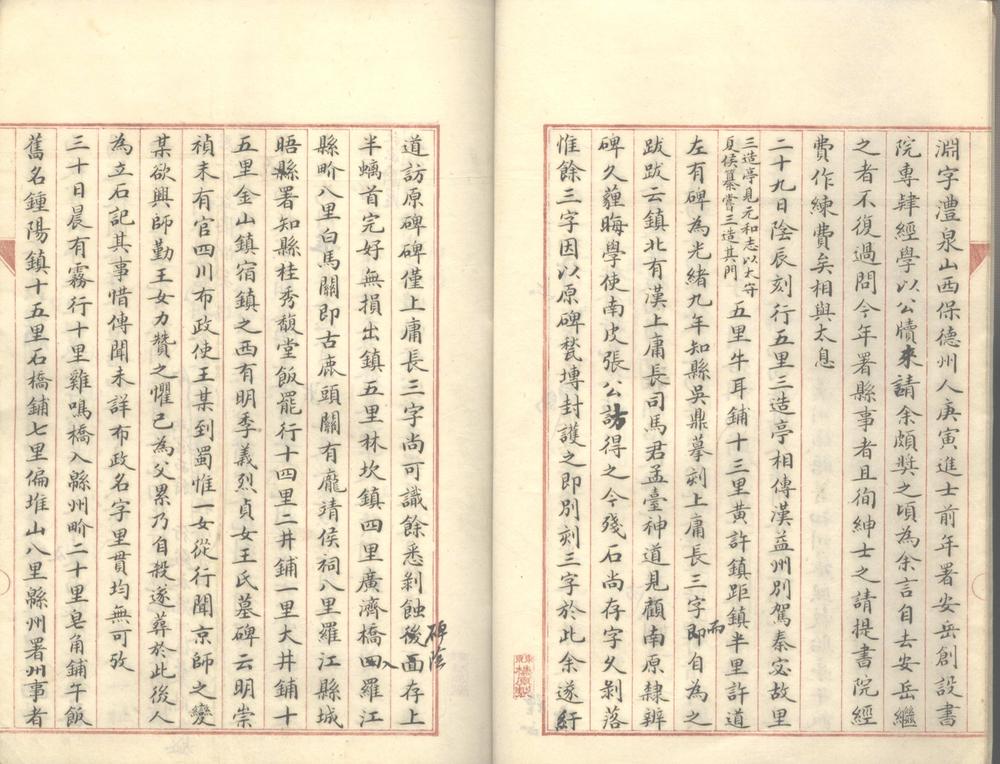 淵字澧泉山西保德州人庚寅進士前年署安岳創設書
院專肄經學以公牘來請余頗獎之頃為余言自去安岳繼
之者不復過問今年署縣事者且徇紳士之請提書院經
費作練費矣相與太息
二十九日陰辰刻行五里三造亭相傳漢益州別駕秦宓故里
三造亭見元和志以太守
夏侯纂嘗三造其門
五里牛耳鋪十三里黃許鎮距鎮半里許道
左有碑為光緒九年知縣吳鼎摹刻上庸長三字即而自為之
跋跋云鎮北有漢上庸長司馬君孟臺神道見顧南原隸辨
碑久薶晦學使南皮張公訪得之今殘石尚存字久剝落
惟餘三字因以原碑甃塼封護之即別刻三字於此余遂紆
道訪原碑碑僅上庸長三字尚可識餘悉剝蝕後面存上
碑陰
半螭首完好無損出鎮五里林坎鎮四里廣濟橋四入羅江
縣畍八里白馬關即古鹿頭關有龐靖侯祠八里羅江縣城
晤縣署知縣桂秀馥堂飯罷行十四里二井鋪一里大井鋪十
五里金山鎮宿鎮之西有明季義烈貞女王氏墓碑云明崇
禎末有官四川布政使王某到蜀惟一女從行聞京師之變
某欲興師勤王女力贊之懼己為父累乃自殺遂葬於此後人
為立石記其事惜傳聞未詳布政名字里貫均無可攷
三十日晨有霧行十里雞鳴橋入緜州畍二十里皂角鋪午飯
舊名鍾陽鎮十五里石橋鋪七里偏堆山八里緜州署州事者